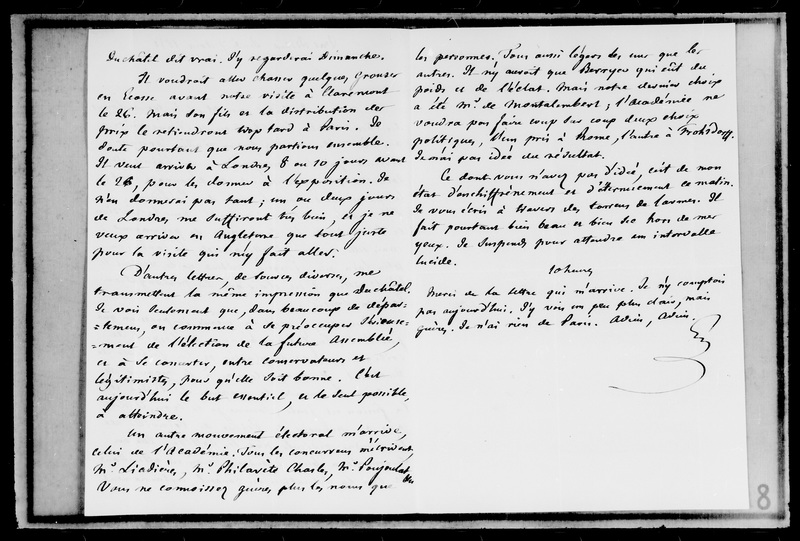 Duchâtel dit vrai. J'y regarderai Dimanche.
Il voudrait aller chasser quelques grouses
en Ecosse avant notre visite à Claremont
le 26. Mais son fils et la distribution des
prix le retiendront trop tard à Paris. Je
doute pourtant que nous partions ensemble.
Il veut arriver à Londres 8 ou 10 jours avant
le 26, pour les donner à l'exposition. Je
n'en donnerai pas tant ; un ou deux jours
de Londres me suffiront très bien, et je ne
veux arriver en Angleterre que tout juste
pour la visite qui m'y fait aller.
D'autres lettres, de sources diverses, me
transmettent la même impression que Duchâtel.
Je vois seulement que, dans beaucoup de dépar-
=temens, on commence à se préoccuper sérieuse-
=ment de l'élection de la future Assemblée,
et à se concerter, entre conservateurs et
légitimistes, pour qu'elle soit bonne. C'est
aujourd'hui le but essentiel, et le seul possible,
à atteindre.
Un autre mouvement électoral m'arrive,
celui de l'Académie. Tous les concurrens m'écrivent,
Mr. Liadières, Mr. Philarète Chasles, Mr. Poujoulat
Vous ne connoissez guères plus les noms que
les personnes. Tous aussi légers les uns que les
autres. Il n'y auroit que Berryer qui eût du
poids et de l'éclat. Mais notre dernier choix
a été Mr. de Montalembert ; l'Académie ne
voudra pas faire coup sur coup deux choix
politiques, l'un pris à Rome, l'autre à Frohsdorff.
Je n'ai pas idée du résultat.
Ce dont vous n'avez pas d'idée, c'est de mon
état d'enchiffrènement et d'éternuement ce matin.
Je vous écris à travers des torrens de larmes. Il
fait pourtant bien beau et bien sec hors de mes
yeux. Je suspends pour attendre un intervalle
lucide.
10 heures
Merci de la lettre qui m'arrive. Je n'y comptois
pas aujourd'hui. J'y vois un peu plus clair, mais
guères. Je n'ai rien de Paris. Adieu, Adieu.
8